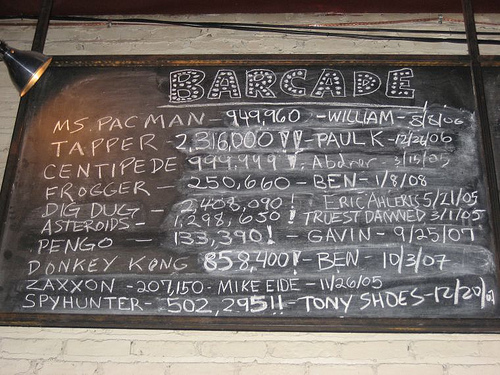 BARCADE
MS. PAC MAN - 949,960 - WILLIAM - 8/8/06
TAPPER 2,316,000!! - PAUL K - 12/26/06
CENTIPEDE 999,999!, 3/15/05
FROGGER - 250,660 - BEN - 1/8/08
DIG DUG - 2,408,090! ERIC AHLERIS 5/21/05
ASTEROIDS - 1,298,650! TRUEST DAWNED 3/1/05
PENGO - 133,390! - GAVIN - 9/25/07
DONKEY KONG 858,400! - BEN - 10/3/07
ZAXXON - 207,150 - MIKE EIDE - 11/26/05
SPYHUNTER - 502,295!! - TONY SHOES -